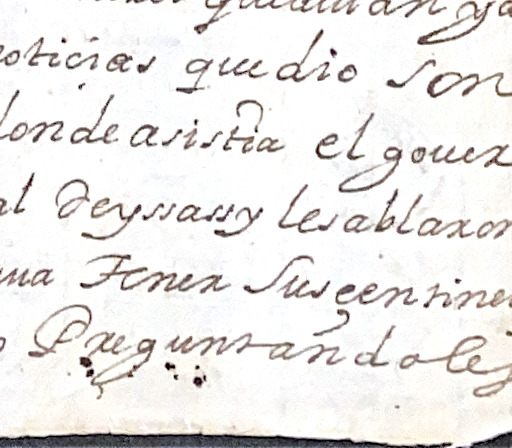 quedauan ya
noticias que dio son
donde asistia el gouer
al deyssassy les ablaron
gua Tener Sus çentinel
o Preguntandoles